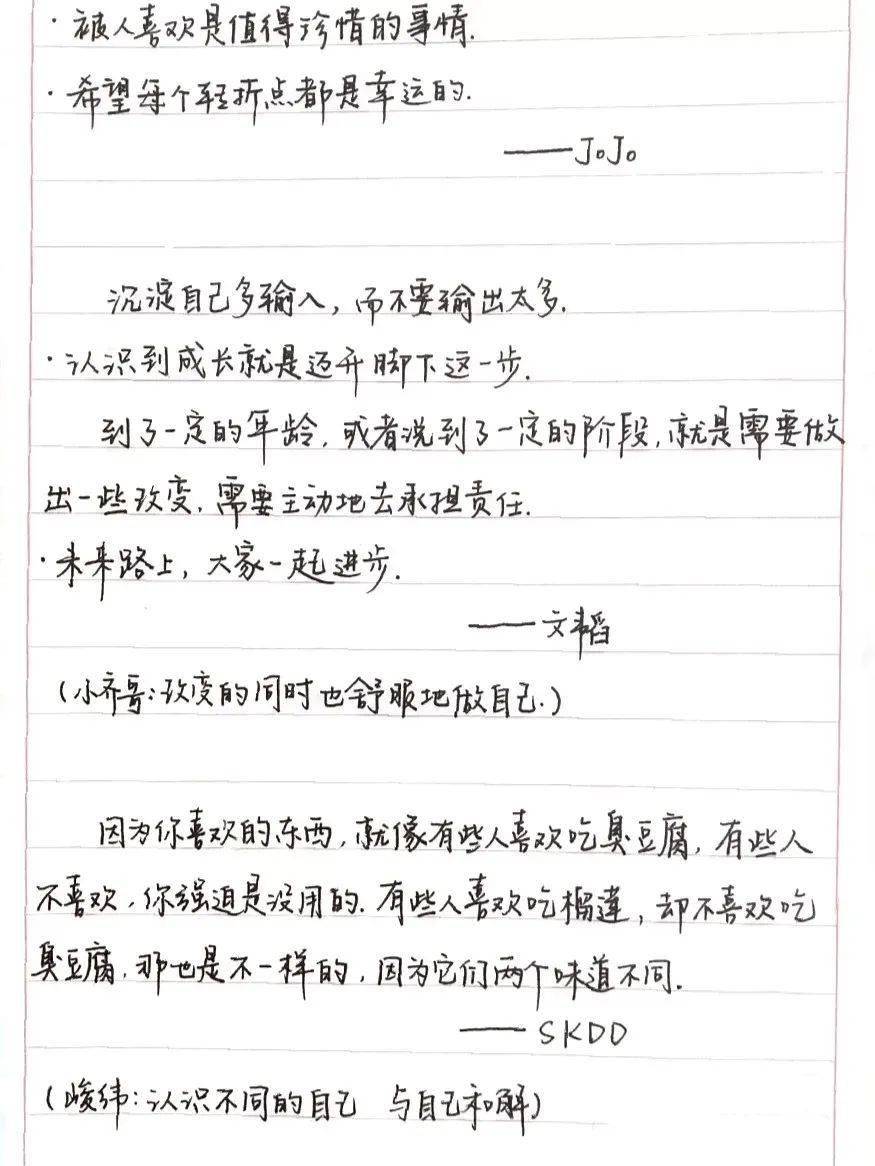 ·被人喜欢是值得珍惜的事情.
·希望每个转折点都是幸运的.
——JoJo
沉淀自己多输入，而不要输出太多.
·认识到成长就是迈开脚下这一步.
到了一定的年龄，或者说到了一定的阶段，就是需要做
出一些改变，需要主动地去承担责任.
·未来路上，大家一起进步.
——文韬
(小齐哥：改变的同时也舒服地做自己.)
因为你喜欢的东西，就像有些人喜欢吃臭豆腐，有些人
不喜欢，你强迫是没用的. 有些人喜欢吃榴莲，却不喜欢吃
臭豆腐，那也是不一样的，因为它们两个味道不同.
——SKDD
(峻纬：认识不同的自己 与自己和解)